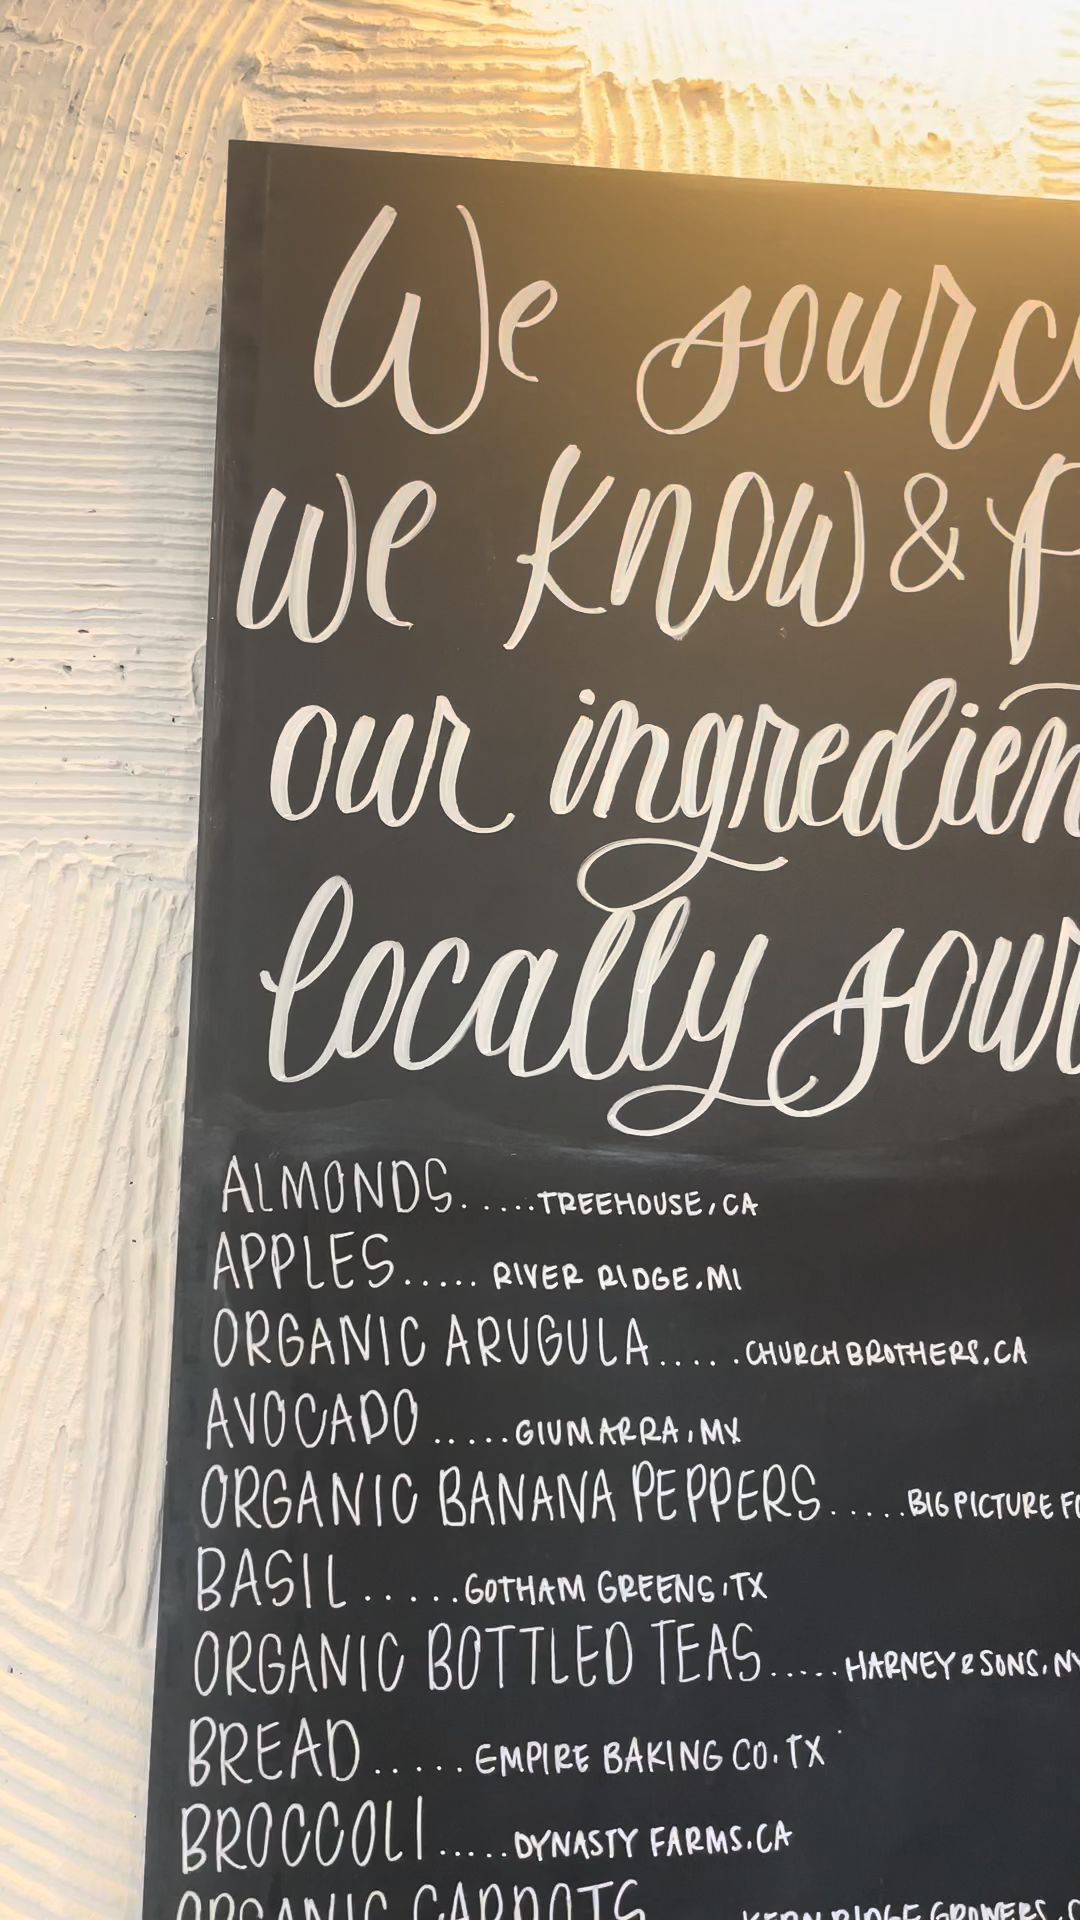 We sourc
we know & P
our ingredien
locally sour
ALMONDS.....TREEHOUSE, CA
APPLES..... RIVER RIDGE, MI
ORGANIC ARUGULA.....CHURCH BROTHERS, CA
AVOCADO.....GIUMARRA, MX
ORGANIC BANANA PEPPERS.....BIG PICTURE FO
BASIL.....GOTHAM GREENS, TX
ORGANIC BOTTLED TEAS.....HARNEY & SONS, NY
BREAD.....EMPIRE BAKING CO. TX
BROCCOLI.....DYNASTY FARMS, CA
ORGANIC CARROTS KERN RIDGE GROWERS, C